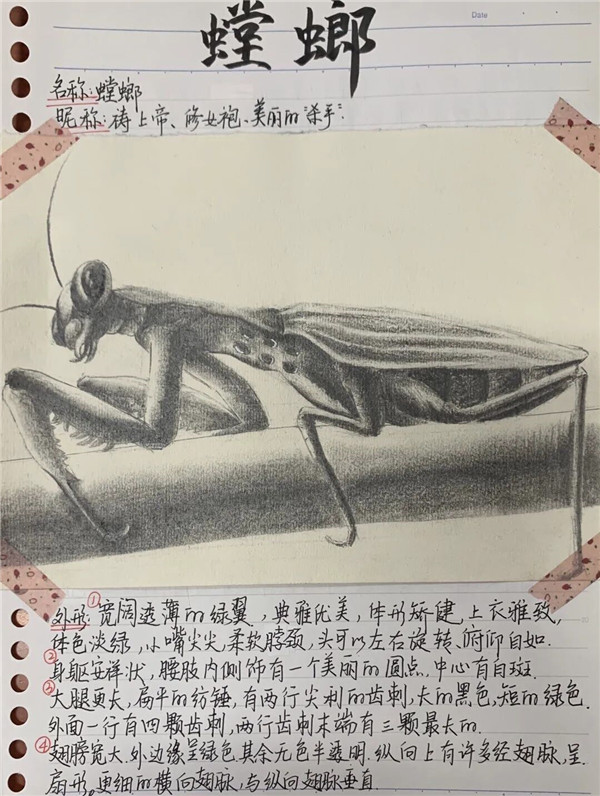 Date
螳螂
名称:螳螂
昵称:祷上帝、修女袍、美丽的"杀手".
外形:①宽阔透薄的绿翼,典雅优美,体形矫健,上衣雅致,
体色淡绿,小嘴尖尖,柔软脖颈,头可以左右旋转、俯仰自如.
②身躯安祥状,腰肢内侧饰有一个美丽的圆点,中心有白斑.
③大腿更长,扁平的纺锤,有两行尖利的齿刺,长的黑色,短的绿色.
外面一行有四颗齿刺,两行齿刺末端有三颗最大的.
④翅膀宽大.外边缘呈绿色.其余无色半透明.纵向上有许多经翅脉,呈
扇形。更细的横向翅脉,与纵向翅脉垂直.